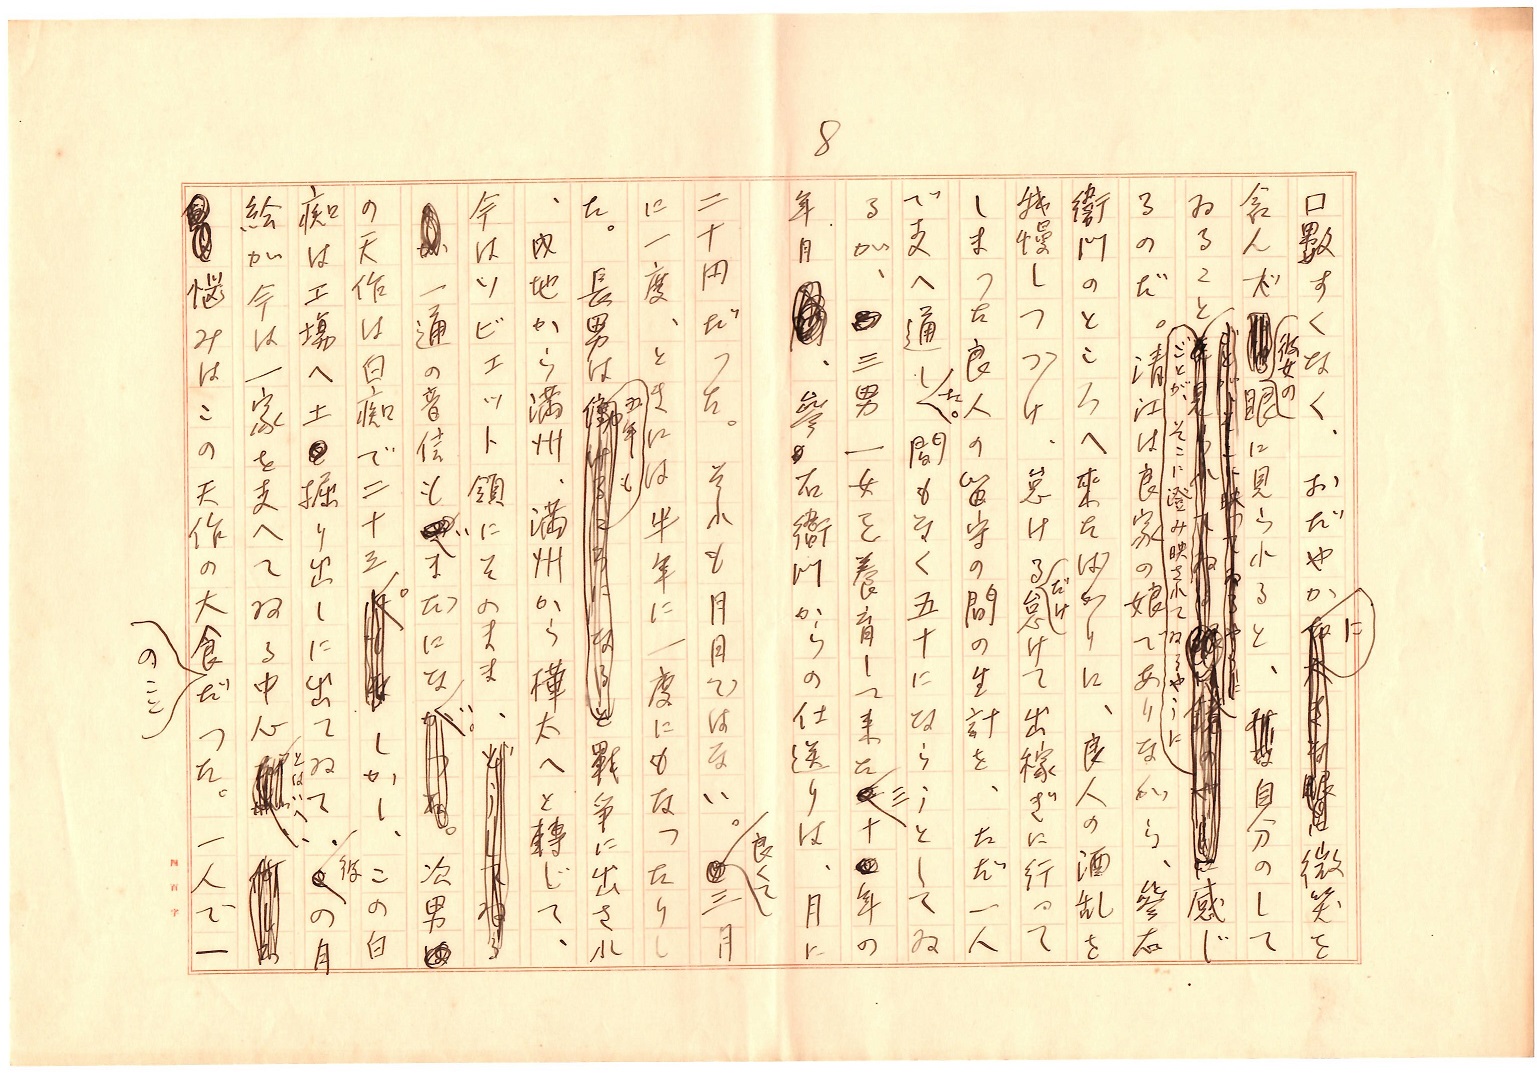 8
口数すくなく、おだやかに微笑を
含んだ彼女の眼に見られると、自分のして
ゐることごとが、そこに澄み映されてゐるやうに感じ
るのだ。清江は良家の娘でありながら、参右
衛門のところへ来たばかりに、良人の酒乱を
我慢しつづけ、怠けるだけ怠けて出稼ぎに行って
しまつた良人の留守の間の生計を、ただ一人
で支へ通した。間もなく五十にならうとしてゐ
るが、三男一女を養育して来た三十年の
年月、参右衛門からの仕送りは、月に
二十円だつた。それも月月ではない。良くて三月
に一度、ときには半年に一度にもなつたりし
た。長男は五年も戦争に出され
、内地から満州、満州から樺太へと轉じて、
今はソビエット領にそのまま、
一通の音信もまだにない。次男
の天作は白痴で二十三。しかし、この白
痴は工場へ土掘り出しに出てゐて、彼の月
給が今は一家を支へてゐる中心とはいへ、
悩みはこの天作の大食のことだつた。一人で一
四百字